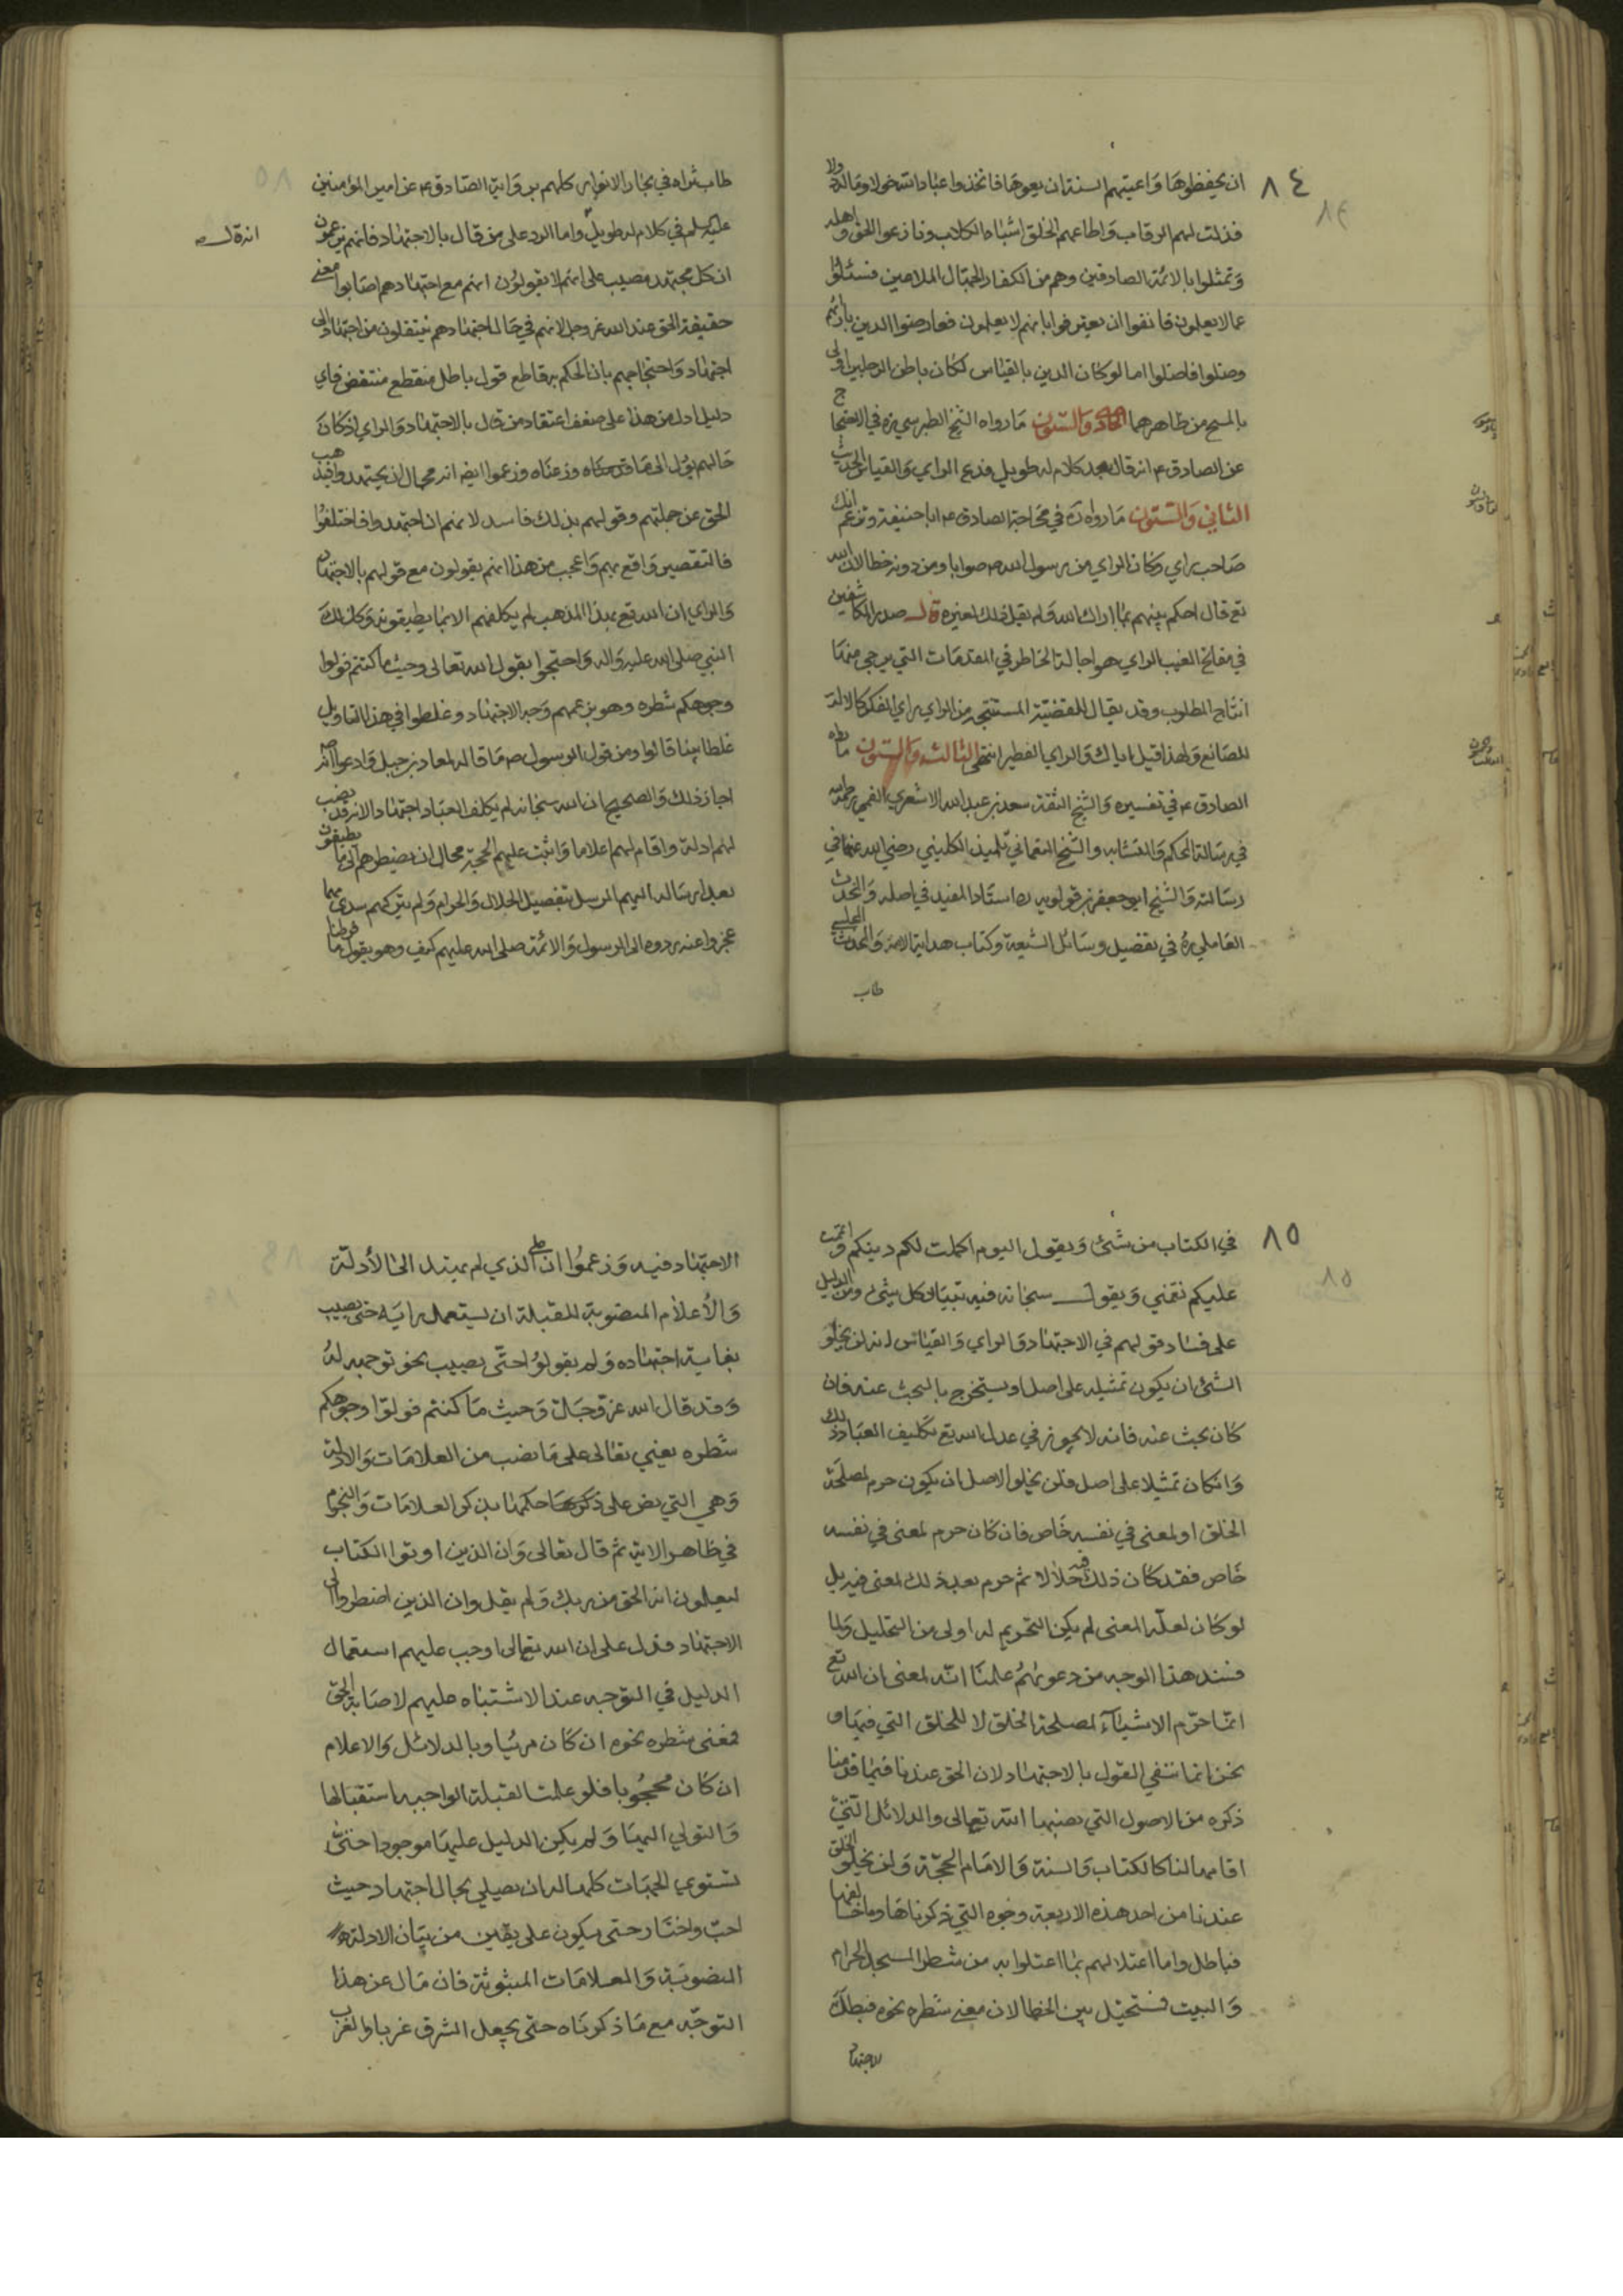 ٨٤
ان يحفظوها واعيتهم السنة ان يعوها فاتخذوا عباد الله خولا وماله دولا
فذلت لهم الرقاب واطاعهم الخلق اشباه الكلاب ونازعوا الحق واهله
وتمثلوا بالائمة الصادقين وهم من الكفار الجهال الملاعين فسئلوا
عما لا يعلمون فانفوا ان يعترفوا بانهم لا يعلمون فعارضوا الدين بارائهم
وضلوا فاضلوا اما لو كان الدين بالقياس لكان باطن الرجلين اولى
بالمسح من ظاهرهما الحادي والستون ما رواه الشيخ الطبرسي ره في الاحتجاج
عن الصادق ع انه قال بعد كلام له طويل فدع الراي والقياس الحديث
الثاني والستون ما رواه ره في محاجة الصادق ع ابا حنيفة وتزعم انك
صاحب راي وكان الراي من رسول الله ص صوابا ومن دونه خطا لان الله
تع قال احكم بينهم بما اراك الله ولم يقل ذلك لغيره قال صدر المكاشفين
في مفاتح الغيب الراي هو اجالة الخاطر في المقدمات التي يرجى منها
انتاج المطلوب وقد يقال للقضية المستنتجة من الراي راي والفكر كالالة
للصانع ولهذا قيل اياك والراي الفطير انتهى الثالث والستون ما رواه
الصادق ع في تفسيره والشيخ الثقة سعد بن عبد الله الاشعري القمي رحمه الله
في رسالة المحكم والمتشابه والشيخ النعماني تلميذ الكليني رضي الله عنهما في
رسالته والشيخ ابو جعفر بن قولويه ره استاد المفيد في اصله والمحدث
العاملي ره في تفصيل وسائل الشيعة وكتاب هداية الامة والمحدث المجلسي
طاب
طاب ثراه في بحار الانوار كلهم برواية الصادق ع عن امير المؤمنين
عليه السلم في كلام له طويل واما الرد على من قال بالاجتهاد فانهم يزعمون
ان كل مجتهد مصيب على انهم لا يقولون انهم مع اجتهادهم اصابوا معنى
حقيقة الحق عند الله عز وجل لانهم في حال اجتهادهم ينتقلون من اجتهاد الى
اجتهاد واحتجاجهم بان الحكم به قاطع قول باطل منقطع منتقض فاي
دليل ادل من هذا على ضعف اعتقاد من قال بالاجتهاد والراي اذ كان
حالهم يؤل الى ما وصفناه وزعموا ايضا انه محال ان يجتهدوا فيذهب
الحق عن جملتهم وقولهم بذلك فاسد لانهم ان اجتهدوا فاختلفوا
فالتقصير واقع بهم واعجب من هذا انهم يقولون مع قولهم بالاجتهاد
والراي ان الله تع بهذا المذهب لم يكلفهم الا بما يطيقونه وكذلك
النبي صلى الله عليه واله واحتجوا بقول الله تعالى وحيث ما كنتم فولوا
وجوهكم شطره وهو بزعمهم وجه الاجتهاد وغلطوا في هذا التاويل
غلطا بينا قالوا ومن قول الرسول ص ما قاله لمعاذ بن جبل وادعوا انه
اجاز ذلك والصحيح ان الله سبحانه لم يكلف العباد اجتهادا لانه قد نصب
لهم ادلة واقام لهم اعلاما واثبت عليهم الحجة محال ان يضطرهم الى ما لا يطيقون
بعد ارساله اليهم الرسل بتفصيل الحلال والحرام ولم يتركهم سدى مهما
عجزوا عنه ردوه الى الرسول والائمة صلى الله عليهم كيف وهو يقول ما فرطنا
٨٥
في الكتاب من شئ ويقول اليوم اكملت لكم دينكم واتممت
عليكم نعمتي ويقول سبحانه فيه تبيان كل شئ ومن الدليل
على فساد قولهم في الاجتهاد والراي والقياس انه لن يخلو
الشئ ان يكون تمثيله على اصل او يستخرج بالبحث عنه فان
كان بحث عنه فانه لا يجوز في عدل الله تع تكليف العباد ذلك
وان كان تمثيلا على اصل فلن يخلو الاصل ان يكون حرم لمصلحة
الخلق او لمعنى في نفسه خاص فان كان حرم لمعنى في نفسه
خاص فقد كان ذلك فيه حلالا ثم حرم بعد ذلك لمعنى فيه بل
لو كان لعلة المعنى لم يكن التحريم له اولى من التحليل ولما
فسد هذا الوجه من دعويهم علمنا انه لمعنى ان الله تع
انما حرم الاشياء لمصلحة الخلق لا للخلق التي فيها و
نحن انما ننفي القول بالاجتهاد لان الحق عندنا فيما قدمنا
ذكره من الاصول التي نصبها الله تعالى والدلائل التي
اقامها لنا كالكتاب والسنة والامام الحجة ولن يخلو الخلق
عندنا من احد هذه الاربعة وجوه التي ذكرناها وما خالفها
فباطل واما اعتلالهم بما اعتلوا به من شطر المسجد الحرام
والبيت فمستحيل بين الخطا لان معنى شطره نحوه فبطل
الاجتهاد
الاجتهاد فيه وزعموا ان على الذي لم يهتد الى الأدلة
والأعلام المنصوبة للقبلة ان يستعمل رايه حتى يصيب
بغاية اجتهاده ولم يقولوا حتى يصيب نحو توجهه له
وقد قال الله عز وجل وحيث ما كنتم فولوا وجوهكم
شطره يعني تعالى على ما نصب من العلامات والادلة
وهي التي نص على حكمها بذكر العلامات والنجوم
في ظاهر الاية ثم قال تعالى وان الذين اوتوا الكتاب
ليعلمون انه الحق من ربك ولم يقل وان الذين اضطروا الى
الاجتهاد فدل على ان الله تعالى اوجب عليهم استعمال
الدليل في التوجه عند الاشتباه عليهم لاصابة الحق
فمعنى شطره نحوه ان كان مرئيا وبالدلائل والاعلام
ان كان محجوبا فلو علمت القبلة الواجبه استقبالها
والتولي اليها ولم يكن الدليل عليها موجودا حتى
تستوي الجهات كلها له ان يصلي بحال اجتهاد حيث
احب واختار حتى يكون على يقين من بيان الادلة
المنصوبة والعلامات المبثوثة فان مال عن هذا
التوجه مع ما ذكرناه حتى يجعل الشرق غربا والغرب